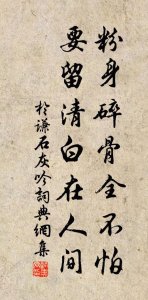 粉身碎骨全不怕
要留清白在人间
於谦石灰吟词典網集